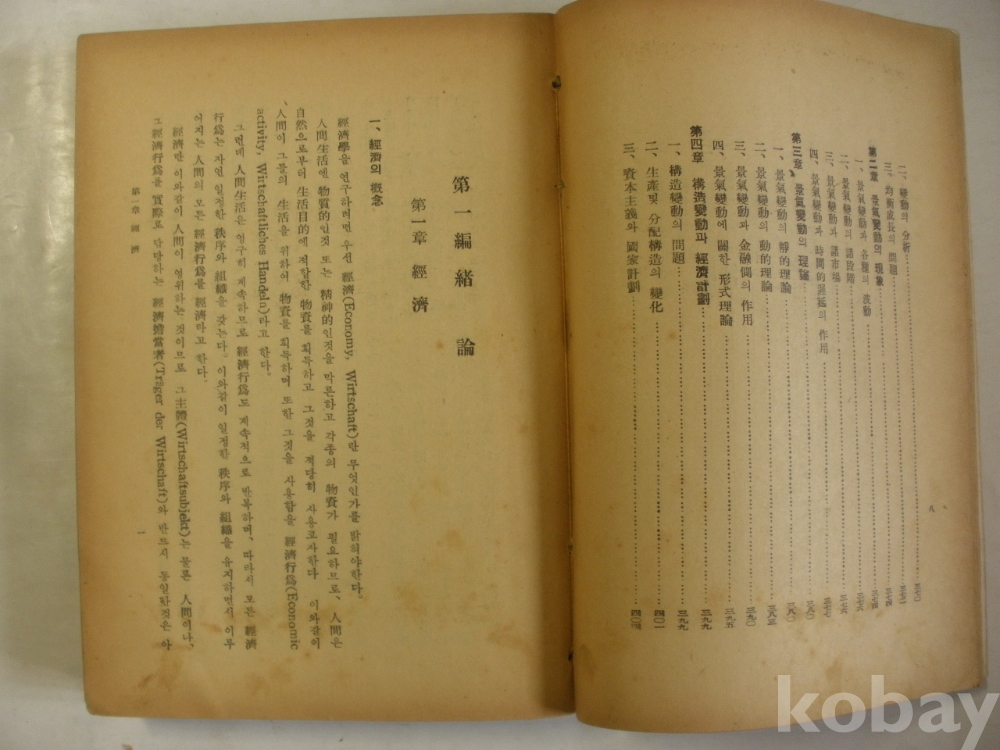 二、變動의 分析 三七〇
三、均衡成長의 問題 三七二
第二章 景氣變動의 現象 三七四
一、景氣變動과 各種의 波動 三七四
二、景氣變動의 諸段階 三七六
三、景氣變動과 諸市場 三七六
四、景氣變動과 時間的遲延의 作用 三七七
第三章 景氣變動의 理論 三八〇
一、景氣變動의 靜的理論 三八〇
二、景氣變動의 動的理論 三八五
三、景氣變動과 金融側의 作用 三九〇
四、景氣變動에 關한 形式理論 三九五
第四章 構造變動과 經濟計劃 三九九
一、構造變動의 問題 三九九
二、生產및 分配構造의 變化 四〇一
三、資本主義와 國家計劃 四〇四
八
第一編 緖論
第一章 經濟
一、經濟의 槪念
經濟學을 연구하려면 우선 經濟(Economy, Wirtschaft)란 무엇인가를 밝혀야한다.
人間生活엔 物質的인것 또는 精神的인것을 막론하고 각종의 物資가 필요하므로、人間은
自然으로부터 生活目的에 적합한 物資를 획득하고 그것을 적당히 사용로자한다 이와같이
人間이 그들의 生活을 위하여 物資를 획득하며 또한 그것을 사용함을 經濟行爲(Economic
activity, Wirtschaftliches Handeln)라고 한다.
그런데 人間生活은 영구히 계속하므로 經濟行爲도 계속적으로 반복하며、따라서 모든 經濟
行爲는 자연 일정한 秩序와 組織을 갖는다. 이와같이 일정한 秩序와 組織을 유지하면서 이루
어지는 人間의 모든 經濟行爲를 經濟라고 한다.
經濟란 이와같이 人間이 영위하는 것이므로 그 主體(Wirtschaftsubjekt)는 물론 人間이다、
그 經濟行爲를 實際로 담당하는 經濟擔當者(Träger der Wirtschaft)와 반드시 동일한것은 아
第一章 經濟
一
kobay